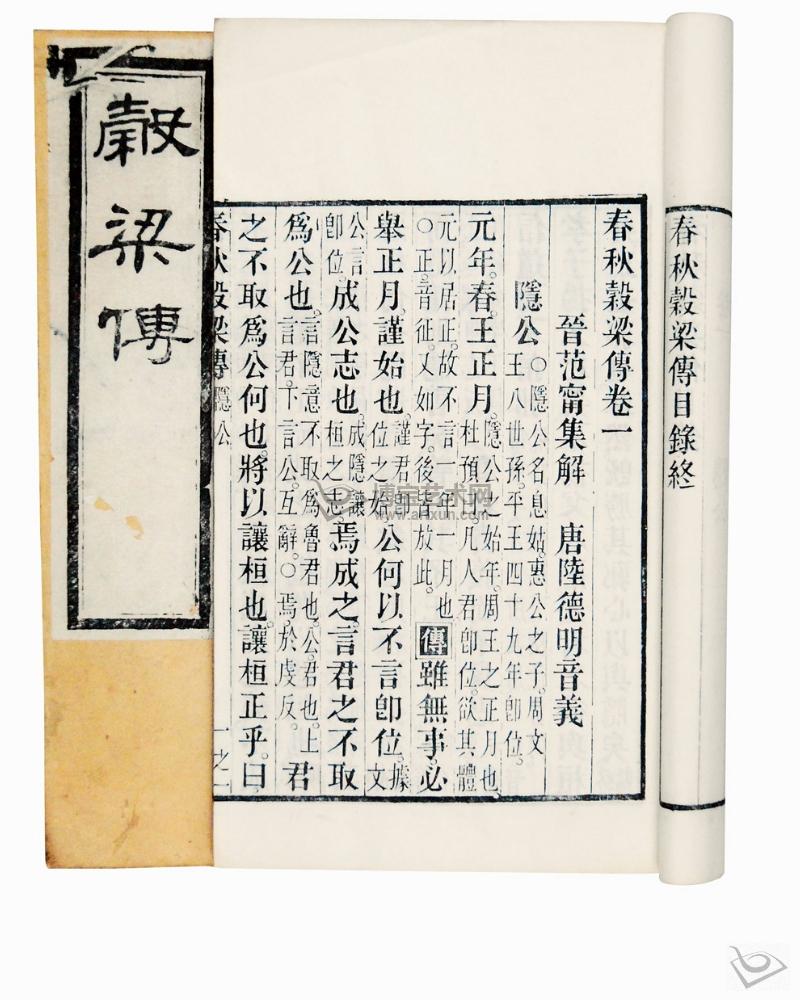 春秋穀梁傳目錄終
春秋穀梁傳卷一
晉范甯集解 唐陸德明音義
隱公 ○隱公名息姑。惠公之子。周文
王八世孫。平王四十九年卽位。
元年。春。王正月。 隱公之始年。周王之正月也。
杜預曰。凡人君卽位。欲其體
元以居正。故不言一年一月也。
○正。音征。又如字。後皆放此。
傳雖無事。必
舉正月。謹始也。 謹君卽
位之始。
公何以不言卽位。 據
文
公言
卽位。
成公志也。 成隱讓
桓之志。
焉成之。言君之不取
爲公也。 言隱意不取爲魯君也。公。君也。上
言君。下言公。互辭。○焉。於虔反。
君
之不取爲公何也。將以讓桓也。讓桓正乎。曰
春秋穀梁傳 隱公 一之一
穀梁傳
博宝艺术网
www.artxun.com